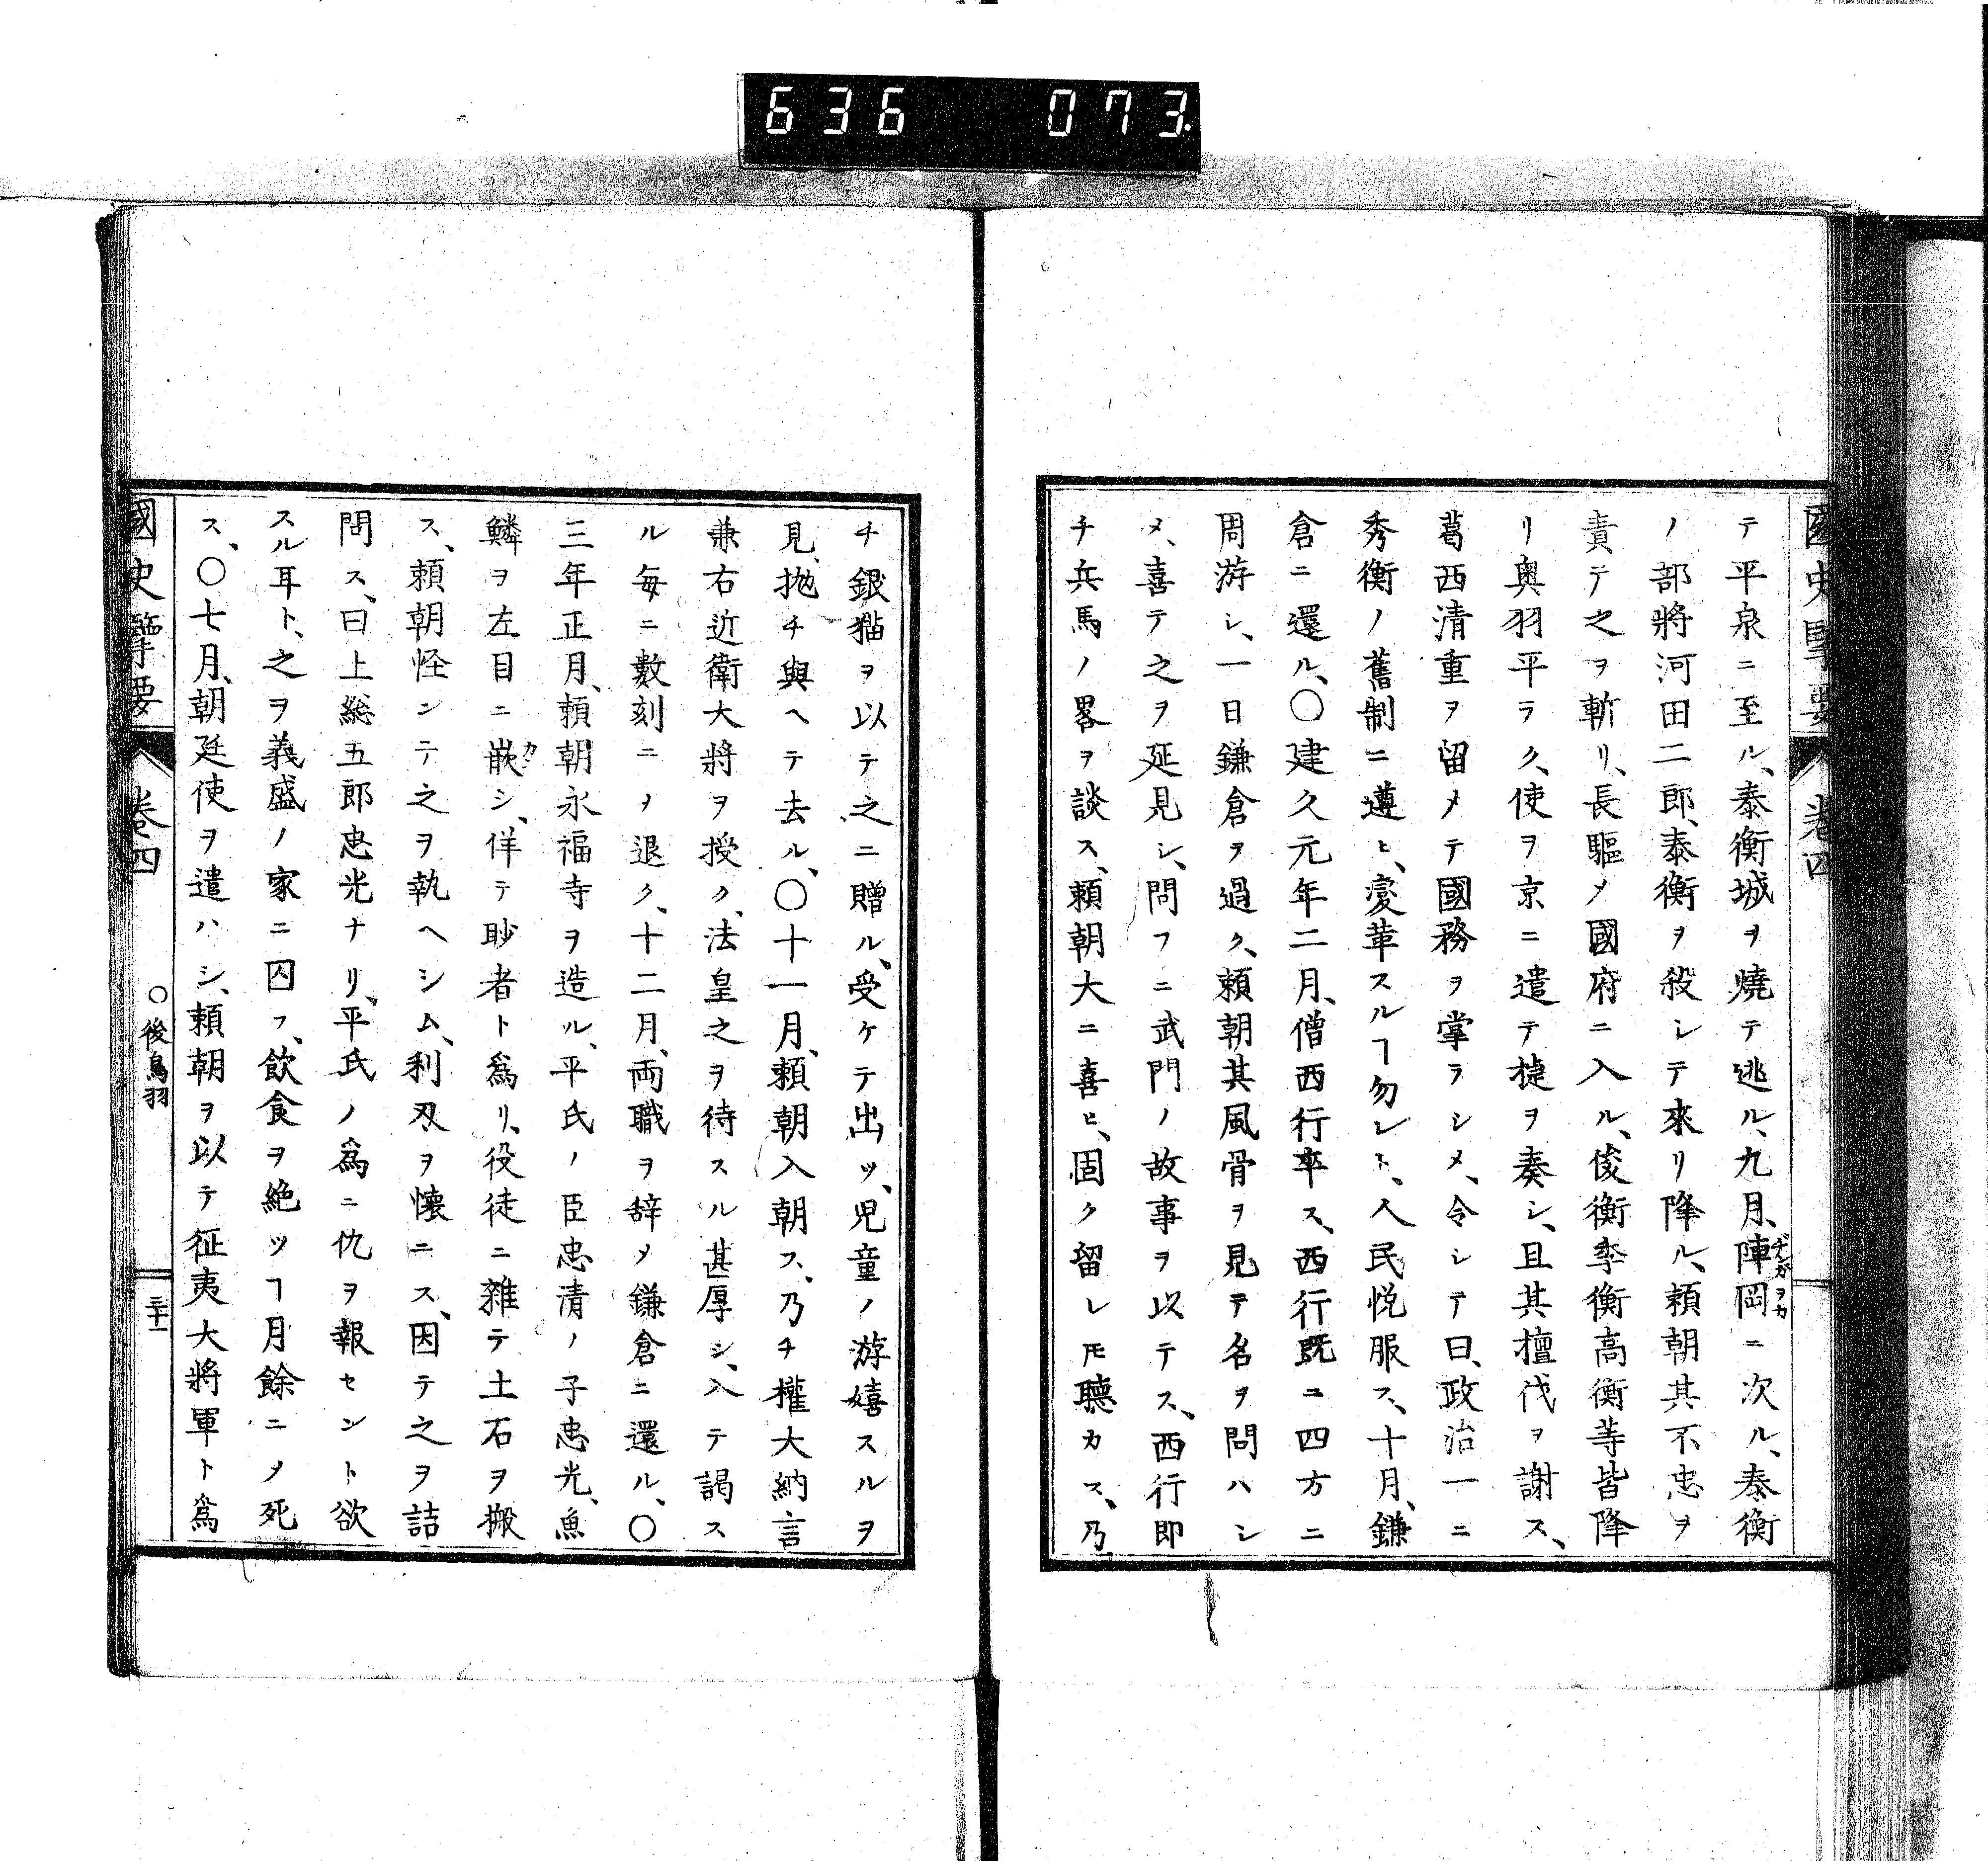 636 073
國史擥要 卷四
テ平泉ニ至ル、泰衡城ヲ燒テ逃ル、九月、陣岡ニ次ル、泰衡
ノ部將河田二郎、泰衡ヲ殺シテ來リ降ル、頼朝其不忠ヲ
責テ之ヲ斬リ、長驅メ國府ニ入ル、俊衡季衡高衡等皆降
リ奥羽平ラク、使ヲ京ニ遣テ捷ヲ奏シ、且其擅伐ヲ謝ス、
葛西清重ヲ留メテ國務ヲ掌ラシメ、令シテ曰、政治一ニ
秀衡ノ舊制ニ遵ヒ、変革スルヿ勿レト、人民悦服ス、十月、鎌
倉ニ還ル、〇建久元年二月、僧西行卒ス、西行既ニ四方ニ
周游シ、一日鎌倉ヲ過ク、頼朝其風骨ヲ見テ名ヲ問ハシ
メ、喜テ之ヲ延見シ、問フニ武門ノ故事ヲ以テス、西行即
チ兵馬ノ畧ヲ談ス、頼朝大ニ喜ヒ、固ク留レ𪜈聽カス、乃
チ銀猫ヲ以テ之ニ贈ル、受ケテ出ツ、児童ノ游嬉スルヲ
見、抛チ與ヘテ去ル、〇十一月、頼朝入朝ス、乃チ權大納言
兼右近衛大將ヲ授ク、法皇之ヲ待スル甚厚シ、入テ謁ス
ル毎ニ數刻ニメ退ク、十二月、両職ヲ辞メ鎌倉ニ還ル、〇
三年正月、頼朝永福寺ヲ造ル、平氏ノ臣忠清ノ子忠光、魚
鱗ヲ左目ニ嵌シ、佯テ眇者ト爲リ、役徒ニ雜テ土石ヲ搬
ス、頼朝怪シテ之ヲ執ヘシム、利刄ヲ懐ニス、因テ之ヲ詰
問ス、曰上総五郎忠光ナリ、平氏ノ爲ニ仇ヲ報セント欲
スル耳ト、之ヲ義盛ノ家ニ囚フ、飲食ヲ絶ツヿ月餘ニメ死
ス、〇七月、朝廷使ヲ遣ハシ、頼朝ヲ以テ征夷大將軍ト爲
國史擥要 卷四 〇後鳥羽 三十一